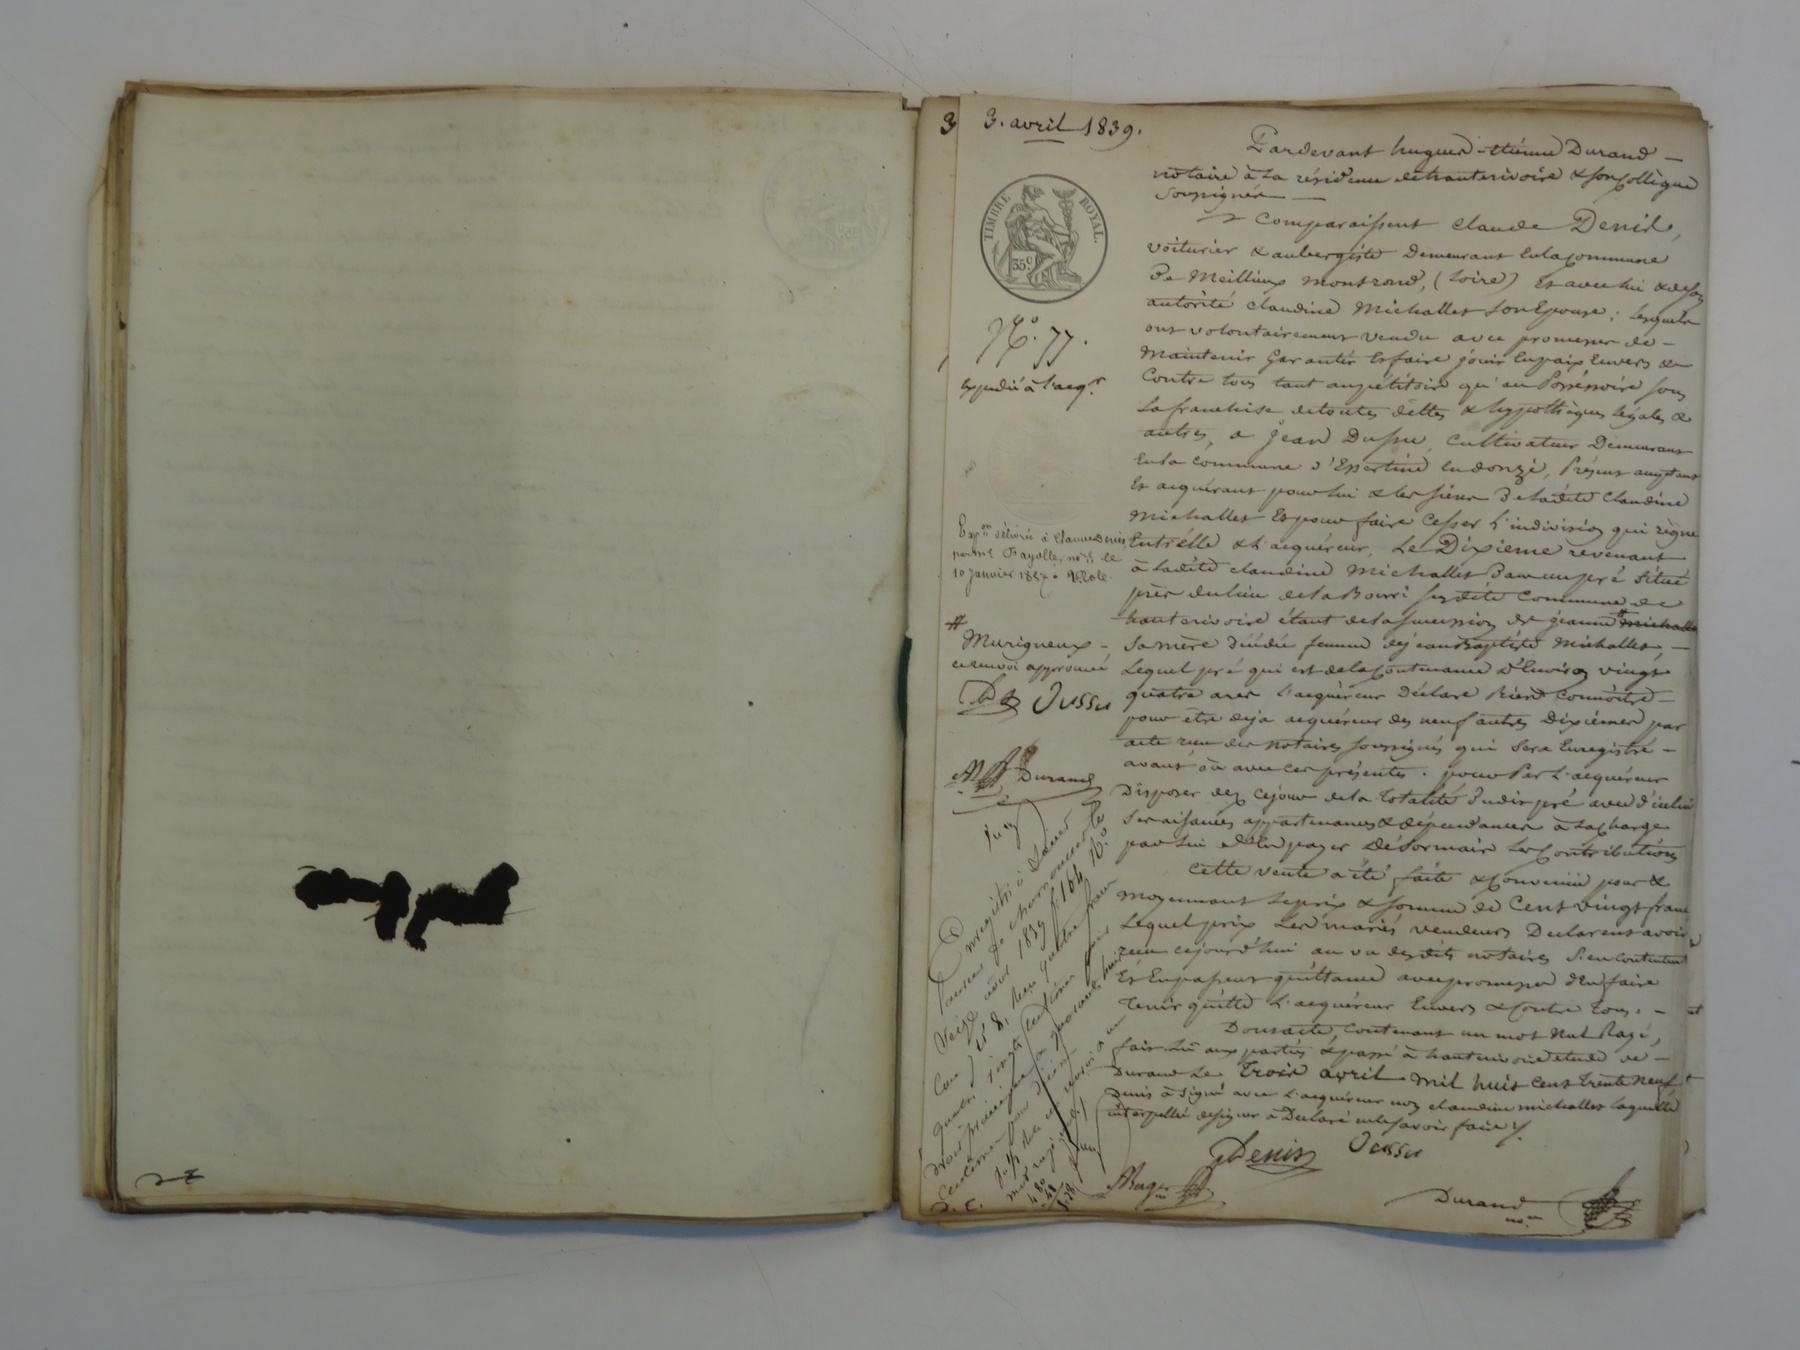 3 3. avril 1839.
TIMBRE ROYAL.
35 c
N.o 77.
expedié à l'acqr.
Expon délivrée à Claude Denis
par me Fayolle, nre le
10 janvier 1857.
#
Murigneux -
renvoi approuvé
Dussu
Durand
Enregistré à
seize avril 1839 f. 166
4 80
48
5.28
D. C.
Pardevant hugues-étienne Durand -
notaire à la résidence de hauterivoire & son Collègue
Soussignés -
Comparaissent Claude Denis,
voiturier & aubergiste demeurant en la Commune
de Meillieux montrond, (Loire) Et avec lui & de son
autorité Claudine Michallet son Epouse ; lesquels
ont volontairement vendu avec promesse de -
Maintenir Garantir Et faire jouir En paix Envers &
Contre tous tant au pétitoire qu'au Possessoire sous
la franchise de toutes dettes & hypothèques légales &
autres, a jean Dussu, Cultivateur Demeurant
En la Commune d'Essertine en donzi, Présent acceptant
Et acquérant pour lui & les siens De ladite Claudine
Michallet Et pour faire Cesser l'indivision qui règne
Entr'elle & l'acquéreur, Le Dixieme revenant
à ladite Claudine Michallet Dans un pré Situé
près du lieu de la Bourri susdite Commune de
hauterivoire étant de la succession de jeanne # michallet
sa mère décédée femme de jean Baptiste Michallet, -
Lequel pré qui est de la Contenance d'Environ vingt
quatre ares l'acquéreur Déclare Bien Connoitre -
pour être déja acquéreur des neuf autres Dixiemes par
acte reçu des notaires soussignés qui sera Enregistré -
avant ou avec ces présentes. pour Par l'acquéreur
Disposer dez Cejour de la totalité dudit pré avec d'icelui
Ses aisances appartenances & dépendances à la charge
par lui d'En payer Désormais les Contributions
Cette vente a été faite & Convenue pour &
moyennant le prix & somme de Cent vingt francs
Lequel prix Les mariés vendeurs Déclarent avoir
reçu cejourd'hui au vu desdits notaires S'en contentent
Et En passent quittance avec promesse d'En faire
Tenir quitte l'acquéreur Envers & Contre tous. -
Dont acte, Contenant un mot Nul Rayé,
fait Lû aux parties & passé à hauterivoire étude de -
Durand Le Trois avril Mil huit Cent trente neuf
Denis a Signé avec l'acquéreur non Claudine michallet laquelle
interpellée de signer a Déclaré ne le savoir faire /.
Denis Dussu
Durand
nre